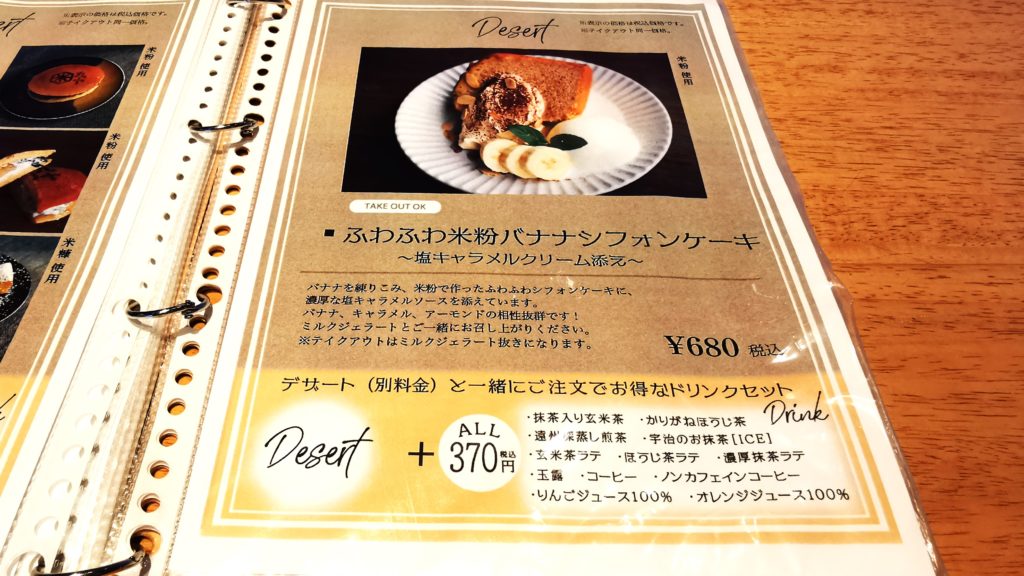 Desert
※表示の価格は税込価格です。
※テイクアウト同一価格。
米粉 使用
米粉 使用
米糠 使用
Desert
※表示の価格は税込価格です。
※テイクアウト同一価格。
米粉 使用
TAKE OUT OK
■ ふわふわ米粉バナナシフォンケーキ
～塩キャラメルクリーム添え～
バナナを練りこみ、米粉で作ったふわふわシフォンケーキに、
濃厚な塩キャラメルソースを添えています。
バナナ、キャラメル、アーモンドの相性抜群です！
ミルクジェラートとご一緒にお召し上がりください。
※テイクアウトはミルクジェラート抜きになります。
¥680 税込
デザート（別料金）と一緒にご注文でお得なドリンクセット
Desert + ALL 370円 税込
Drink
・抹茶入り玄米茶 ・かりがねほうじ茶
・遠州深蒸し煎茶 ・宇治のお抹茶[ICE]
・玄米茶ラテ ・ほうじ茶ラテ ・濃厚抹茶ラテ
・玉露 ・コーヒー ・ノンカフェインコーヒー
・りんごジュース100% ・オレンジジュース100%